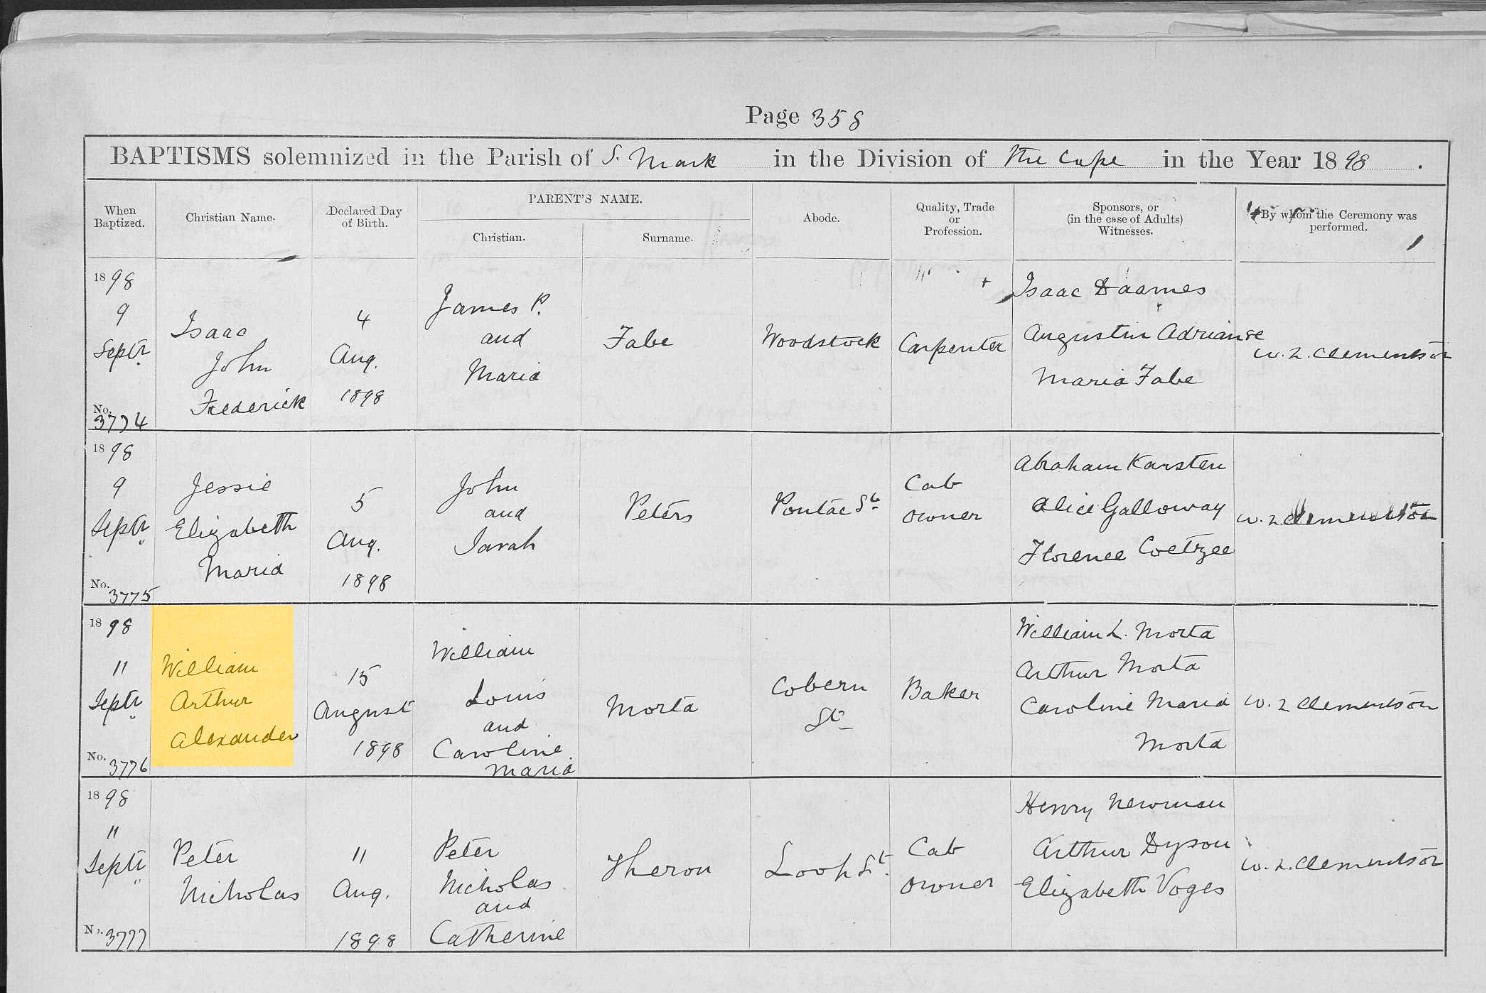 Page 358
BAPTISMS solemnized in the Parish of S. Mark in the Division of The Cape in the Year 1898.
When Baptized.
Christian Name.
Declared Day of Birth.
PARENT'S NAME.
Christian.
Surname.
Abode.
Quality, Trade or Profession.
Sponsors, or (in the case of Adults) Witnesses.
By whom the Ceremony was performed.
1898
9
Septr
No. 3774
Isaac
John
Frederick
4
Aug.
1898
James P.
and
Maria
Fabe
Woodstock
Carpenter
Isaac Daames
Augustin Adrianse
Maria Fabe
W. L. Clementson
1898
9
Septr
No. 3775
Jessie
Elizabeth
Maria
5
Aug.
1898
John
and
Sarah
Peters
Pontac St.
Cab
owner
Abraham Karsten
Alice Galloway
Florence Coetzee
W. L Clementson
1898
11
Septr
No. 3776
William
Arthur
Alexander
15
August
1898
William
Louis
and
Caroline
Maria
Morta
Cobern
St
Baker
William L. Morta
Arthur Morta
Caroline Maria
Morta
W. L Clementson
1898
11
Septr
No. 3777
Peter
Nicholas
11
Aug.
1898
Peter
Nicholas
and
Catherine
Theron
Loop St.
Cab
owner
Henry Newman
Arthur Dyson
Elizabeth Voges
W. L. Clementson